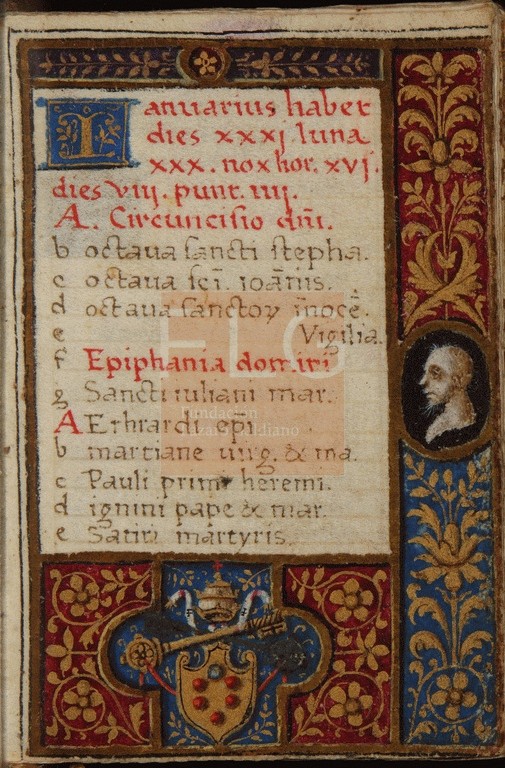 Ianuarius habet
dies xxxj luna
xxx. nox hor. xvj.
dies viij. punt. iiij.
A. Circuncisio dn̄i.
b octaua sancti stepha.
c octaua sci̅. ioān̄is.
d octaua sanctoꝝ in̄oce̅.
e Vigilia.
f Epiphania domini
g Sancti iuliani mar.
A Erhardi ep̄i
b martiane uirg. & ma.
c Pauli primi heremi.
d ignini pape & mar.
e Satiri martyris.
FLG
Fundación
Lázaro Galdiano